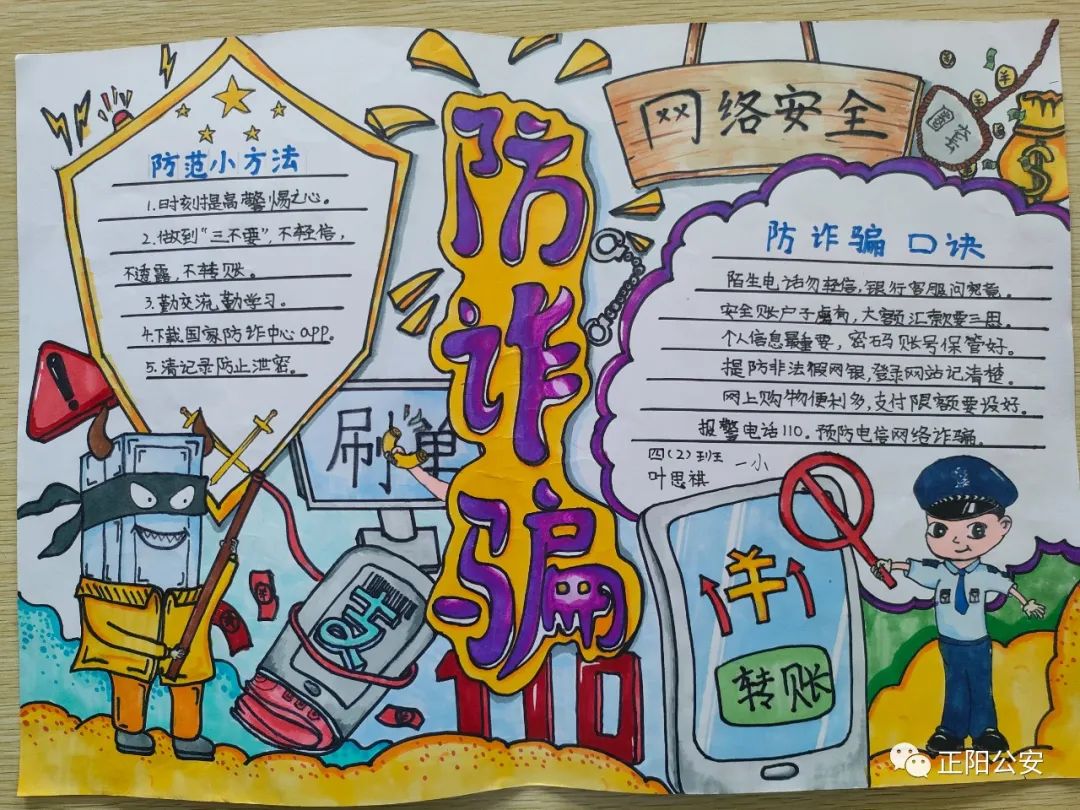 防诈骗
网络安全
圈套
防范小方法
1.时刻提高警惕之心。
2.做到“三不要”,不轻信,
不透露,不转账。
3.勤交流,勤学习。
4.下载国家防诈中心app。
5.清记录防止泄密。
防诈骗 口诀
陌生电话勿轻信,银行客服问究竟。
安全账户子虚有,大额汇款要三思。
个人信息最重要,密码账号保管好。
提防非法假网银,登录网站记清楚。
网上购物便利多,支付限额要设好。
报警电话110.预防电信网络诈骗。
四(2)班 一小
叶思祺
刷单
支
110
转账
正阳公安